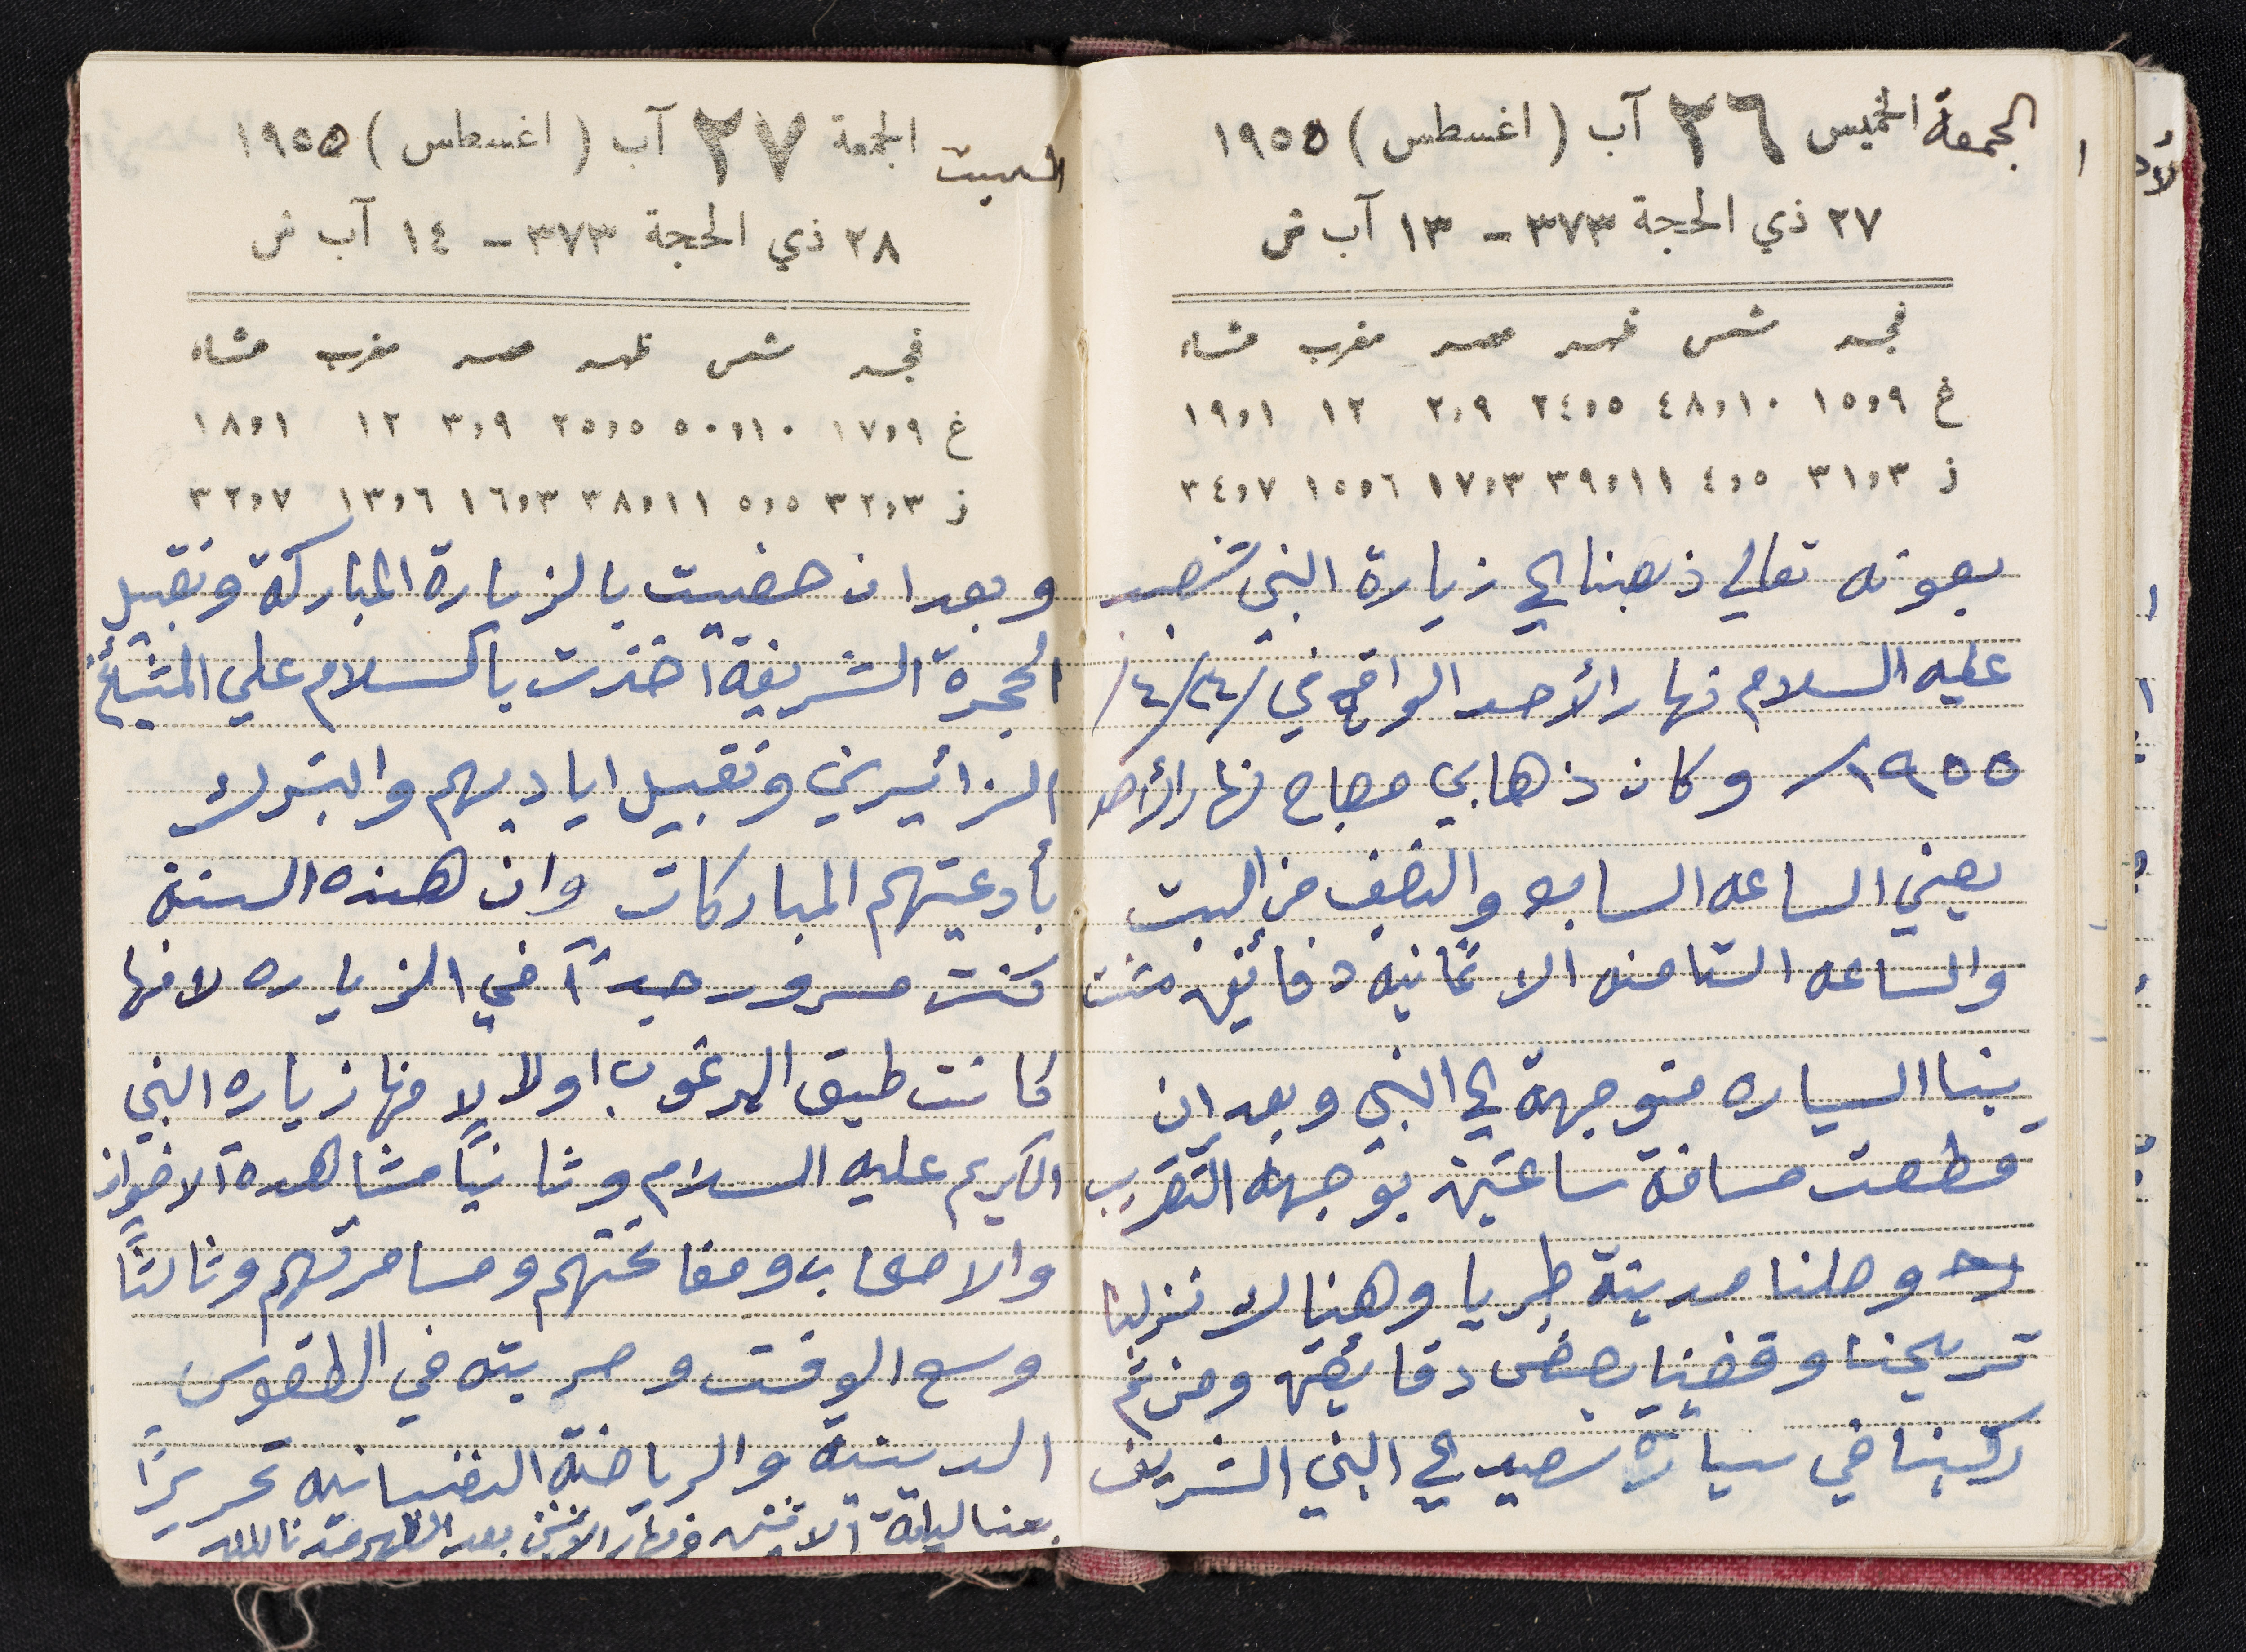 الجمعة الخميس ٢٦ آب (اغسطس) ١٩٥٥
٢٧ ذي الحجة ٣٧٣ - ١٣ آب ش
فجر شمس ظهر عصر مغرب عشاء
غ ١٥،٩ ٤٨،١٠ ٢٤،٥ ٢،٩ ١٢ ١٩،١
ز ٣١،٣ ٤،٥ ٣٩،١١ ١٧،٣ ١٥،٦ ٣٤،٧
بعونه تعالى ذهبنا الى زيارة النبي شعيب
عليه السلام نهار الأحد الواقع في ٢٤/٤/
١٩٥٥ وكان ذهابي صباح نهار الأحد
يعني الساعه السابعه والنصف من البيت
والساعه الثامنه الا ثمانيه دقائق مشت
بنا السياره متوجهة الى النبي وبعد ان
قطعت مسافة ساعتين بوجهه التقريب
وصلنا مدينة طبريا وهناك نزلنا
تريحنا وقضينا بعض دقائق ومن ثم
ركبنا في سيارة سعيد الى النبي الشريف
السبت الجمعة ٢٧ آب (اغسطس) ١٩٥٥
٢٨ ذي الحجة ٣٧٣ - ١٤ آب ش
فجر شمس ظهر عصر مغرب عشاء
غ ١٧،٩ ٥٠،١٠ ٢٥،٥ ٣،٩ ١٢ ١٨،١
ز ٣٢،٣ ٥،٥ ٣٨،١١ ١٦،٣ ١٣،٦ ٣٢،٧
وبعد ان حضيت بالزيارة المباركة وتقبيل
الحجرة الشريفة أخذت بالسلام علي المشائخ
الزائيرين وتقبيل اياديهم والتبرك
بأدعيتهم المباركات وان هذه السنة
كنت مسرور جيداً في الزياره لانها
كانت طبق المرغوب اولا لانها زياره النبي
الكريم عليه السلام وثانيًا مشاهدة الاخوان
والاصحاب ومفاتحتهم ومسامرتهم وثالثًا
وسع الوقت وحريته في الطقوس
الدينية والرياضة النفسانيه تحريرًا
ليلة الاثنين ونهار الاثنين بعد الظهر عدنا للبلد